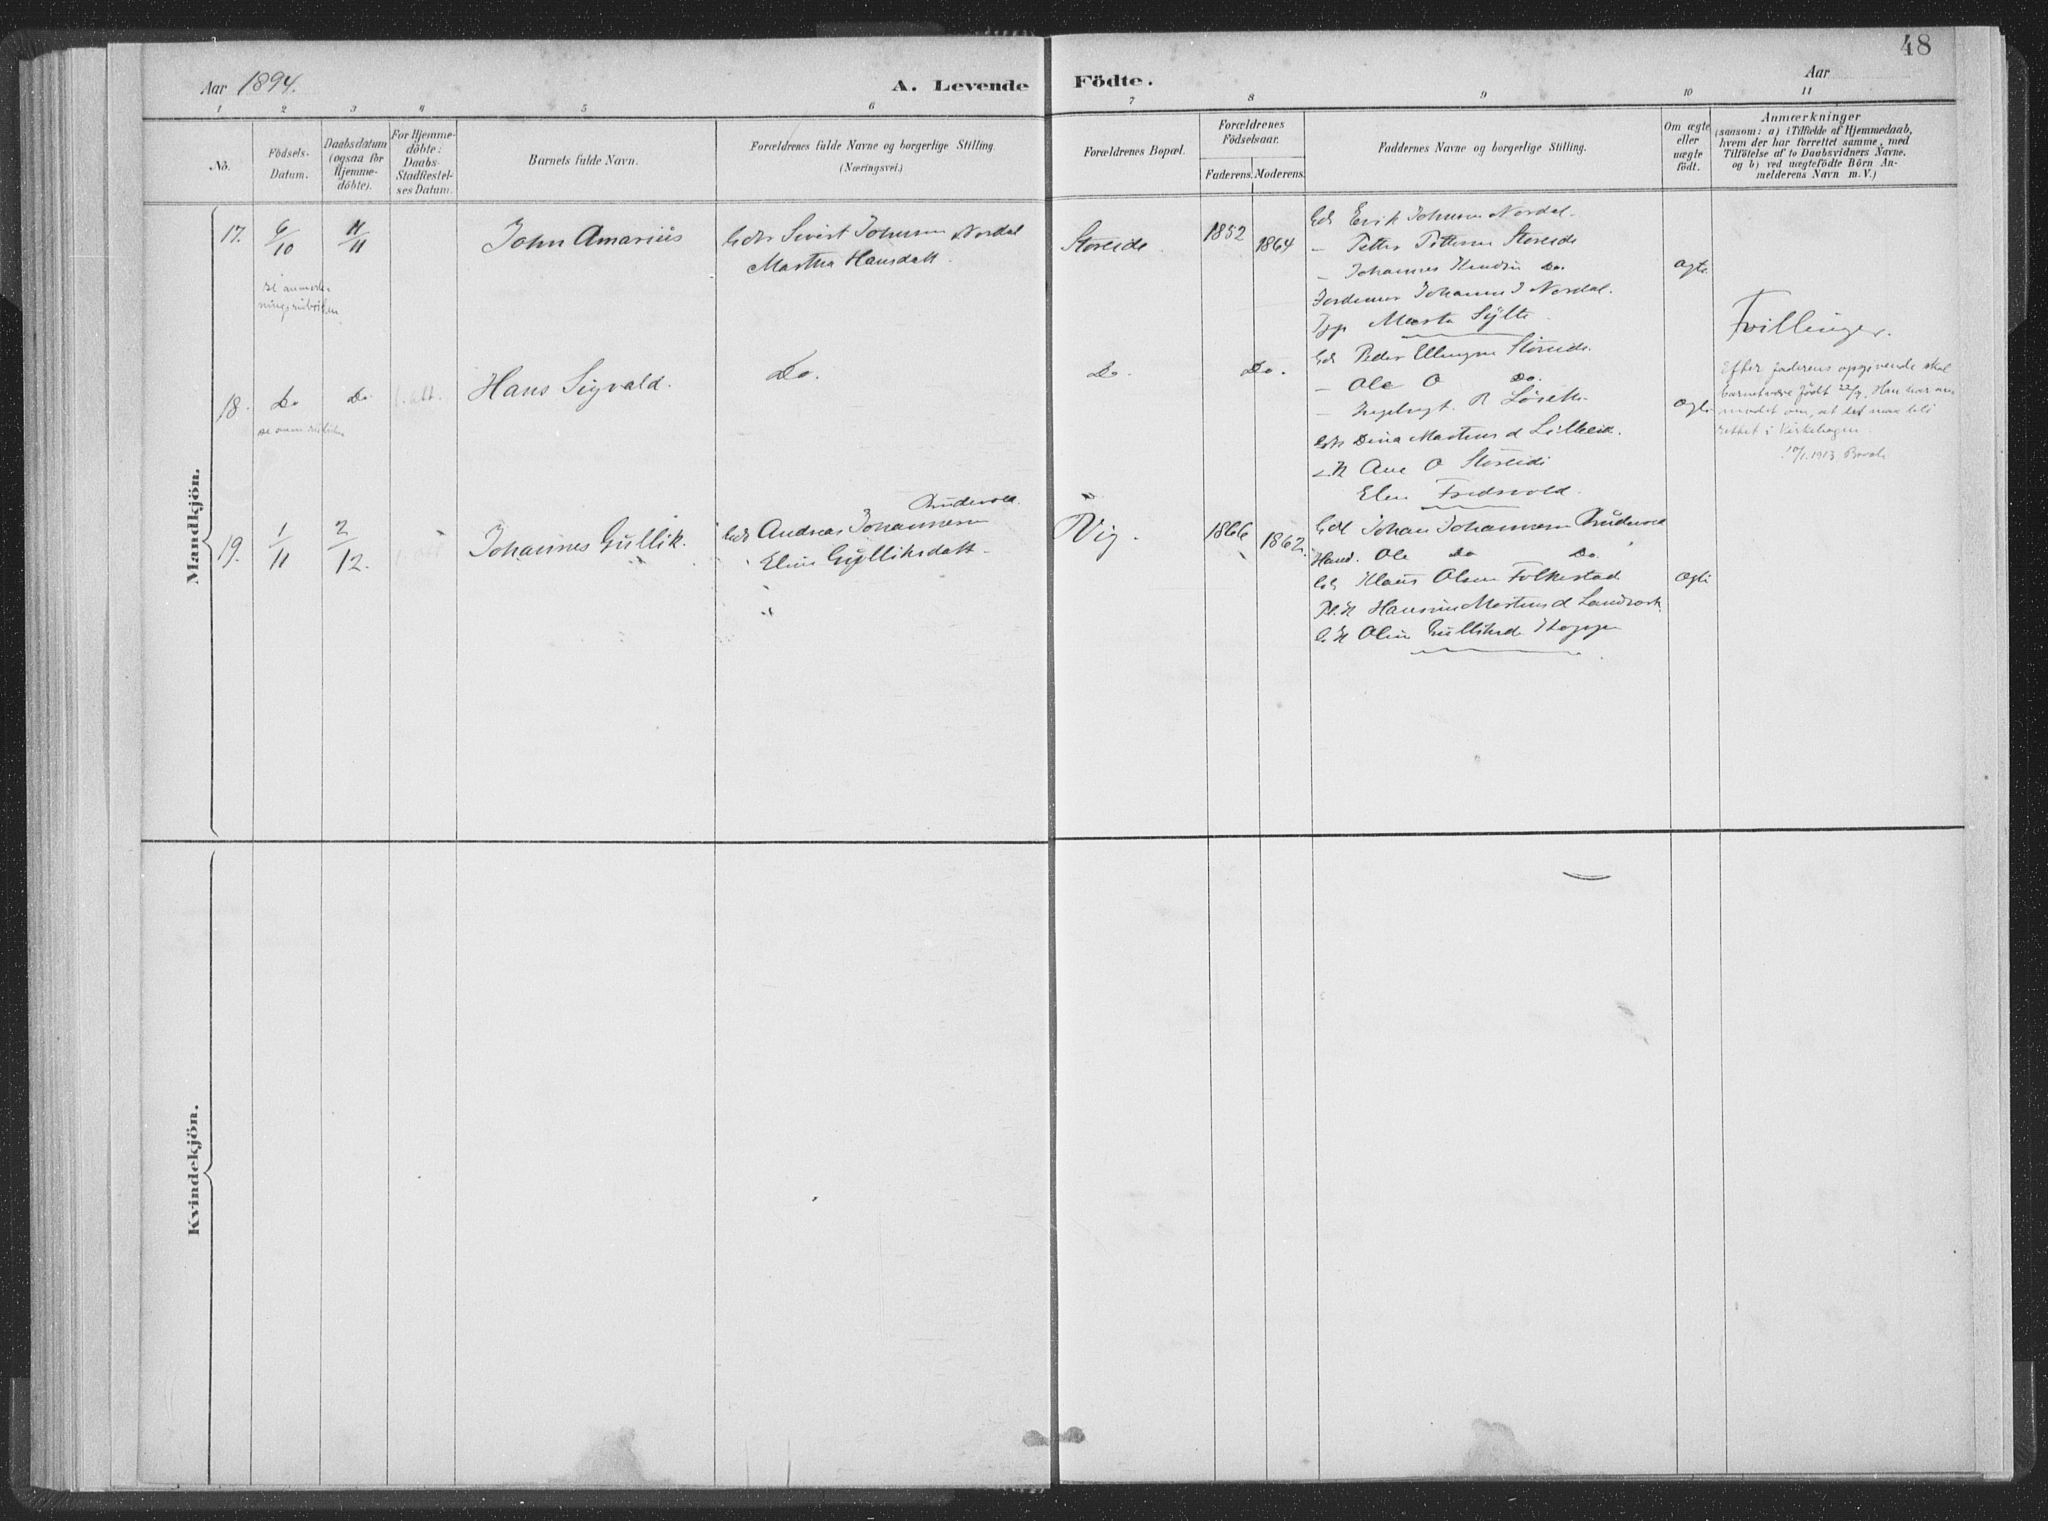 48
Aar 1894.
A. Levende Födte.
Aar
1 2 3 4 5 6 7 8 9 10 11
No.
Födsels-Datum.
Daabsdatum (ogsaa for Hjemme-döbte).
For Hjemme-döbte: Daabs-Stadfæstel-ses Datum.
Barnets fulde Navn.
Forældrenes fulde Navne og borgerlige Stilling.
(Næringsvei.)
Forældrenes Bopæl.
Forældrenes Födselsaar.
Faderens. Moderens.
Faddernes Navne og borgerlige Stilling.
Om ægte eller uægte födt.
Anmærkninger
(saasom: a) i Tilfælde af Hjemmedaab,
hvem der har forrettet samme, med
Tilföielse af to Daabsvidners Navne.
og b) ved uægtefödte Börn An-
melderens Navn m. V.)
Mandkjön.
17. 6/10 11/11 John Amariüs
Sivert Johnsen Nordal
Martha Hansdatt.
Storeide. 1852 1864
Erik Johnsen Nordal.
– Petter Pettersen Storeide
– Johannes Do.
Johanne J Nordal.
Marta Sylte.
Ægte
se anmærk-
ningsrubriken
Tvillinger.
18. Do Do Hans Sigvald. Do. Do. Do.
se anm. rubriken
Peder Ellingsen Storeide.
– Ole O Do.
– R Løseth
Dina Martins d Lilleeide.
Ane O Storeide
Elen Fredsvold.
Ægte
Efter faderens opgivende skal
barnet være født 22/9. Han har an-
modet om, at det maa bli
rettet i Kirkebogen.
19. 1/11 2/12. Johannes Güllik.
Andreas Johannesen Brudevold.
Eline Gülliksdatt.
Vig. 1866 1862.
Johan Johannesen Brüdevold
Ole Do Do.
Klaus Olsen Folkestad
Hansine Martins d Landvork
Oline Gülliksd
Ægte
Kvindekjön.